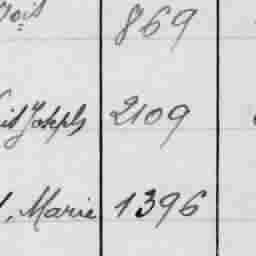 869
Joseph 2109
, Marie 1396